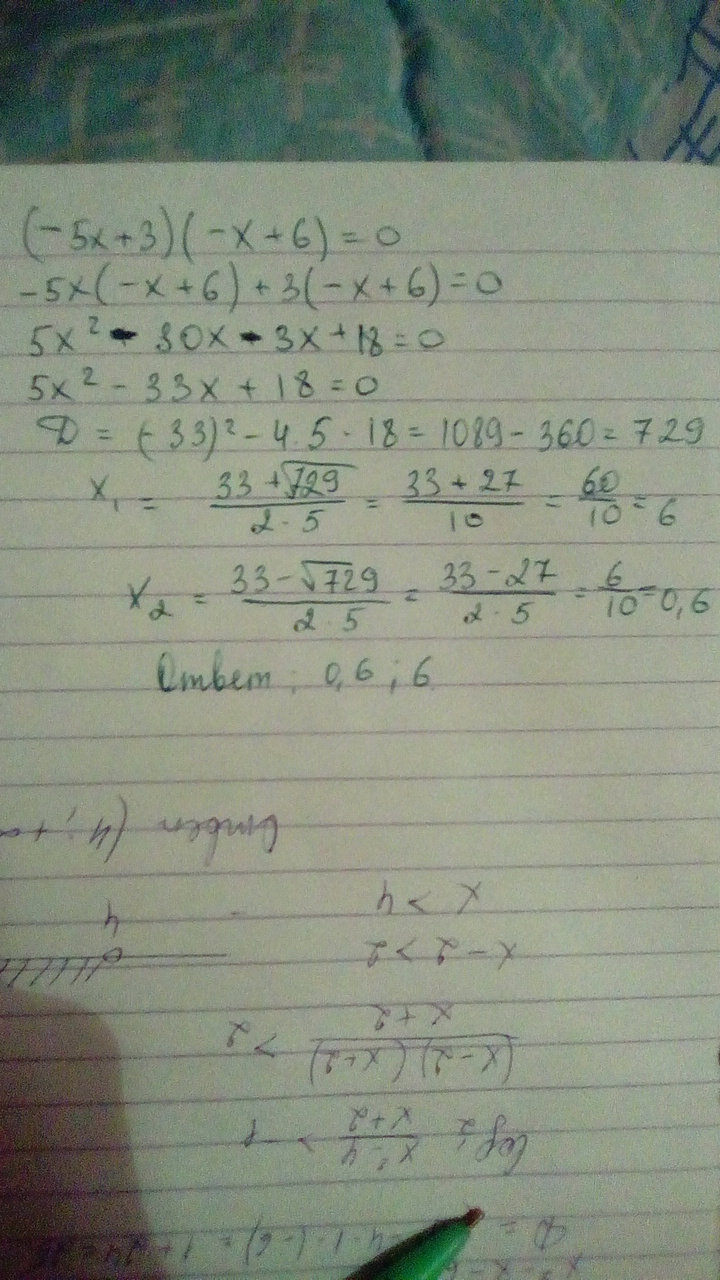 (-5x+3)(-x+6)=0
-5x(-x+6)+3(-x+6)=0
5x² - 30x - 3x+18=0
5x² - 33x + 18 = 0
D = (-33)² - 4·5·18 = 1089 - 360 = 729
x₁ = (33+√729)/(2·5) = (33+27)/10 = 60/10 = 6
x₂ = (33-√729)/(2·5) = (33-27)/(2·5) = 6/10 = 0,6
Ответ: 0,6; 6
log₂ (x²-4)/(x+2) > 1
(x-2)(x+2)/(x+2) > 2
x-2>2
x>4
4
Ответ (4; +